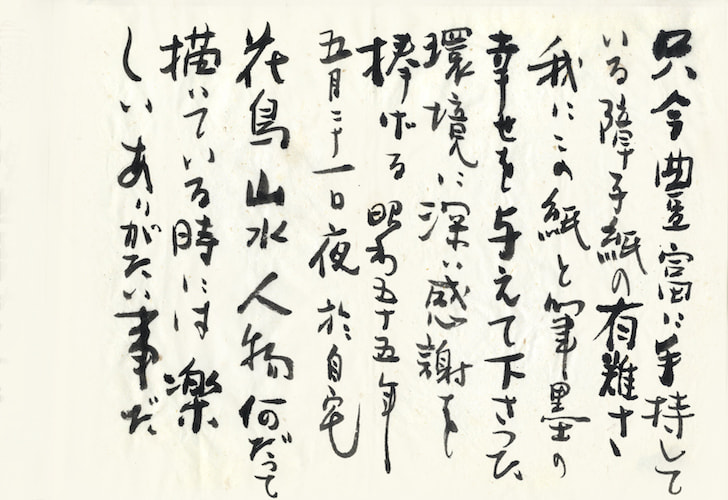 只今豊富に手持して
いる障子紙の有難さ
我にこの紙と筆墨の
幸せを与えて下さった
環境に深い感謝を
捧げる昭和五十五年
五月二十一日夜於自宅
花鳥山水人物何だって
描いている時には楽
しいありがたい事だ